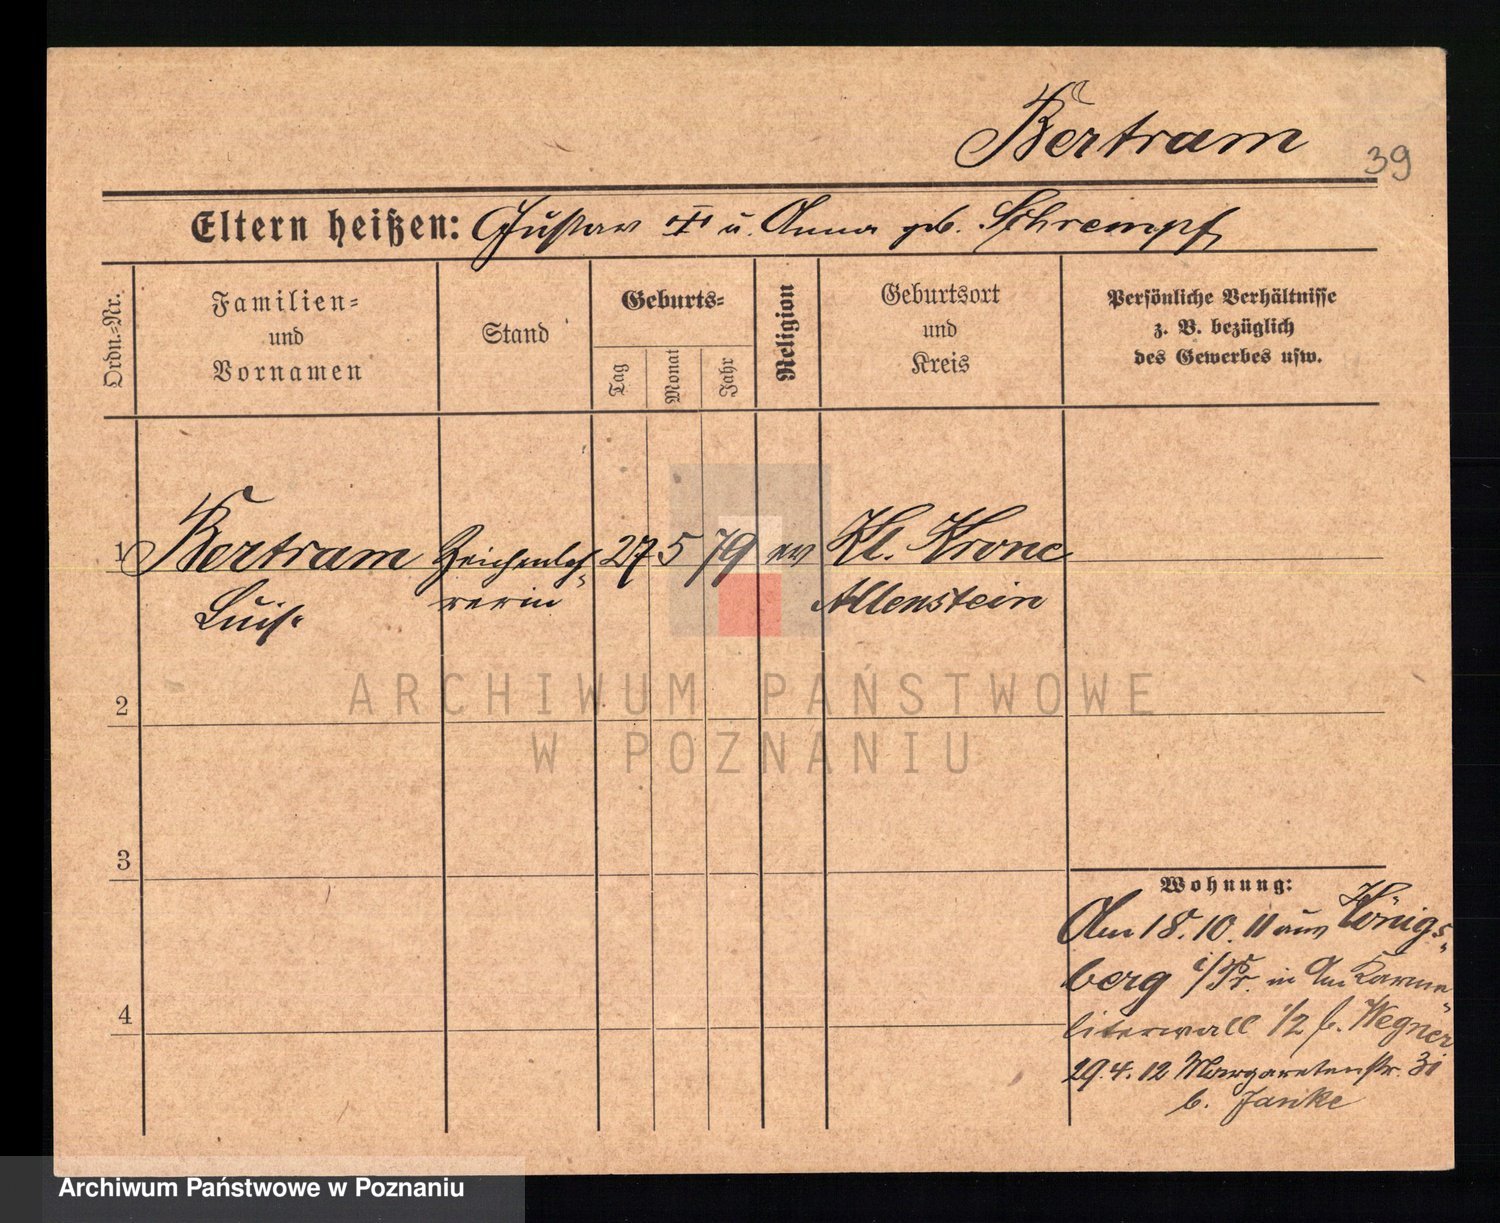 Bertram
39
Eltern heißen: Gustav † u. Anna geb. Schrempf
Ordn.-Nr.
Familien-
und
Vornamen
Stand
Geburts-
Tag
Monat
Jahr
Religion
Geburtsort
und
Kreis
Persönliche Verhältnisse
z. B. bezüglich
des Gewerbes usw.
1 Bertram Zeichenleh- 27 5 79 ev Kl. Krone
Luise rerin Allenstein
2
3
4
Wohnung:
Am 18.10.11 aus Königs-
berg i/Pr. in Am Karme-
literwall 1/2 b. Wegner
29.4.12 Margaretenstr. 31
b. Janke
ARCHIWUM PAŃSTWOWE
W POZNANIU
Archiwum Państwowe w Poznaniu